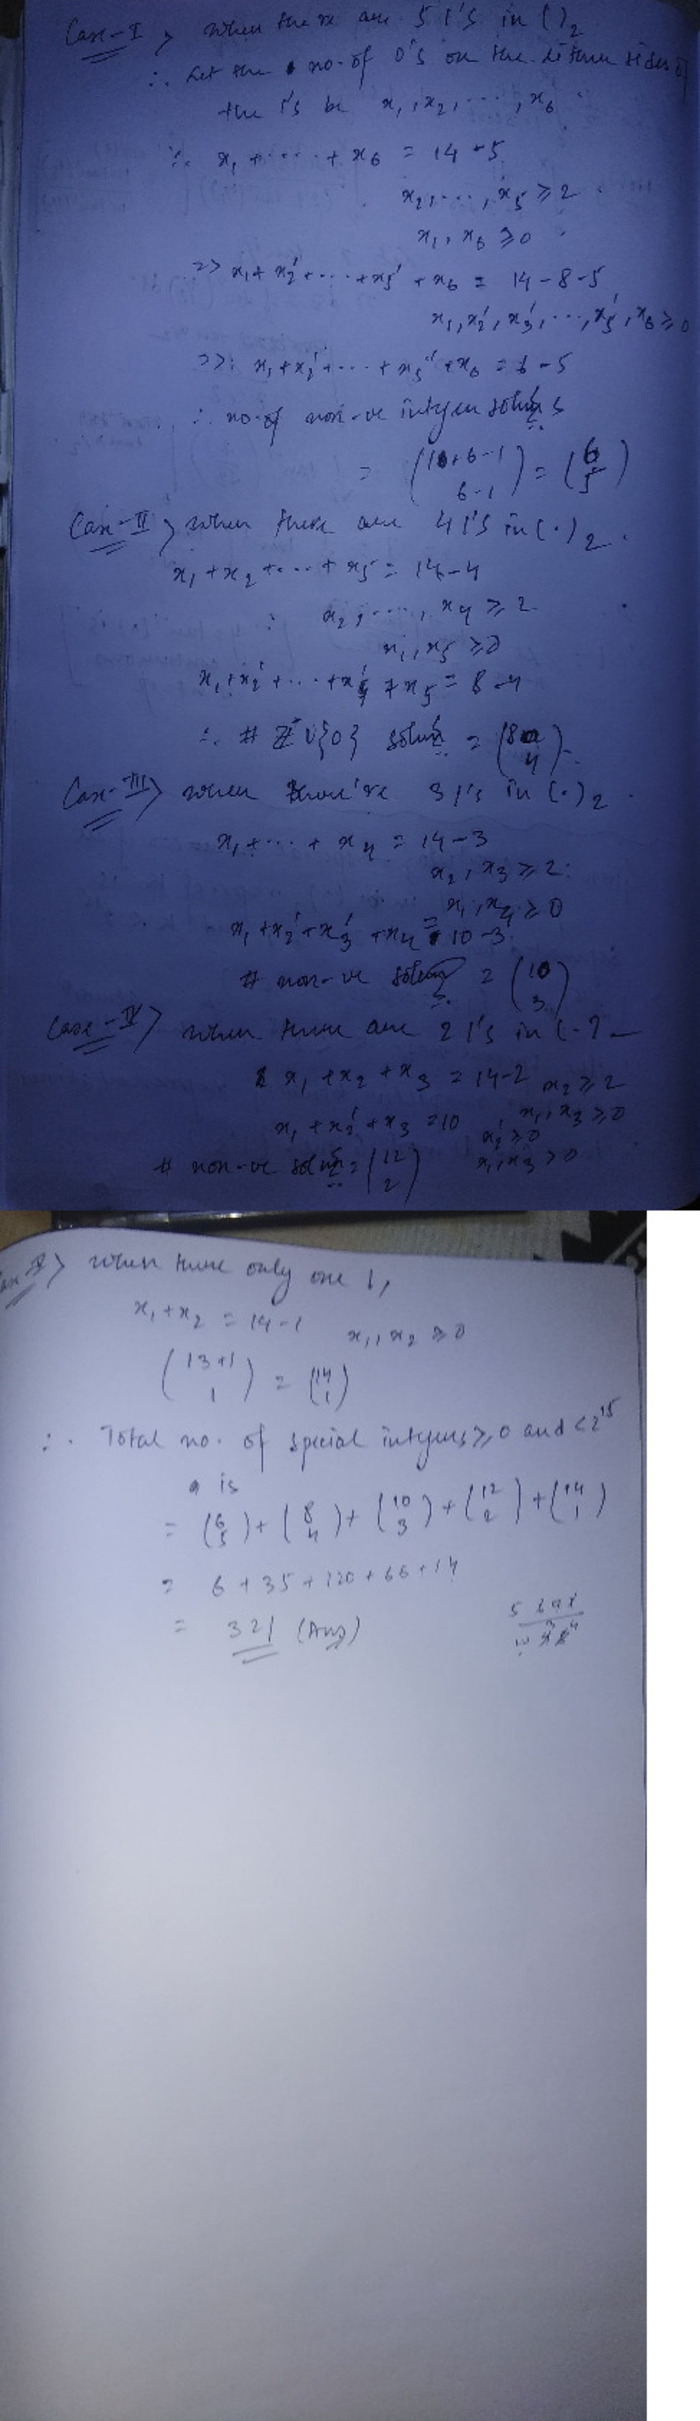 Case-I> When there are 5 1's in ( )2
∴ Let the no. of 0's on the different sides of
the 1's be x1, x2, ..., x6
∴ x1 + ... + x6 = 14-5
x2, ..., x5 ≥ 2
x1, x6 ≥ 0
=> x1 + x2' + ... + x5' + x6 = 14-8-5
x1, x2', x3', ..., x5', x6 ≥ 0
=> x1 + x2' + ... + x5' + x6 = 6-5
∴ no. of non-ve integer solns
= (1+6-1 6-1) = (6 5)
Case-II> When there are 4 1's in (.)2.
x1 + x2 + ... + x5 = 14-4
x2, ..., x4 ≥ 2
x1, x5 ≥ 0
x1 + x2' + ... + x4' + x5 = 8-4
∴ # Z+ U{0} soln = (8 4)
Case-III> When there're 3 1's in (.)2.
x1 + ... + x4 = 14-3
x2, x3 ≥ 2
x1, x4 ≥ 0
x1 + x2' + x3' + x4 = 10-3
# non-ve soln = (10 3)
Case-IV> When there are 2 1's in (.)
x1 + x2 + x3 = 14-2 x2 ≥ 2
x1, x3 ≥ 0
x1 + x2' + x3 = 10 x2' ≥ 0
# non-ve soln = (12 2) x1, x3 > 0
Case V> When there only one 1,
x1 + x2 = 14-1 x1, x2 ≥ 0
(13+1 1) = (14 1)
∴ Total no. of special integers ≥ 0 and < 2^15
is
= (6 5) + (8 4) + (10 3) + (12 2) + (14 1)
= 6 + 35 + 120 + 66 + 14
= 321 (Ans)